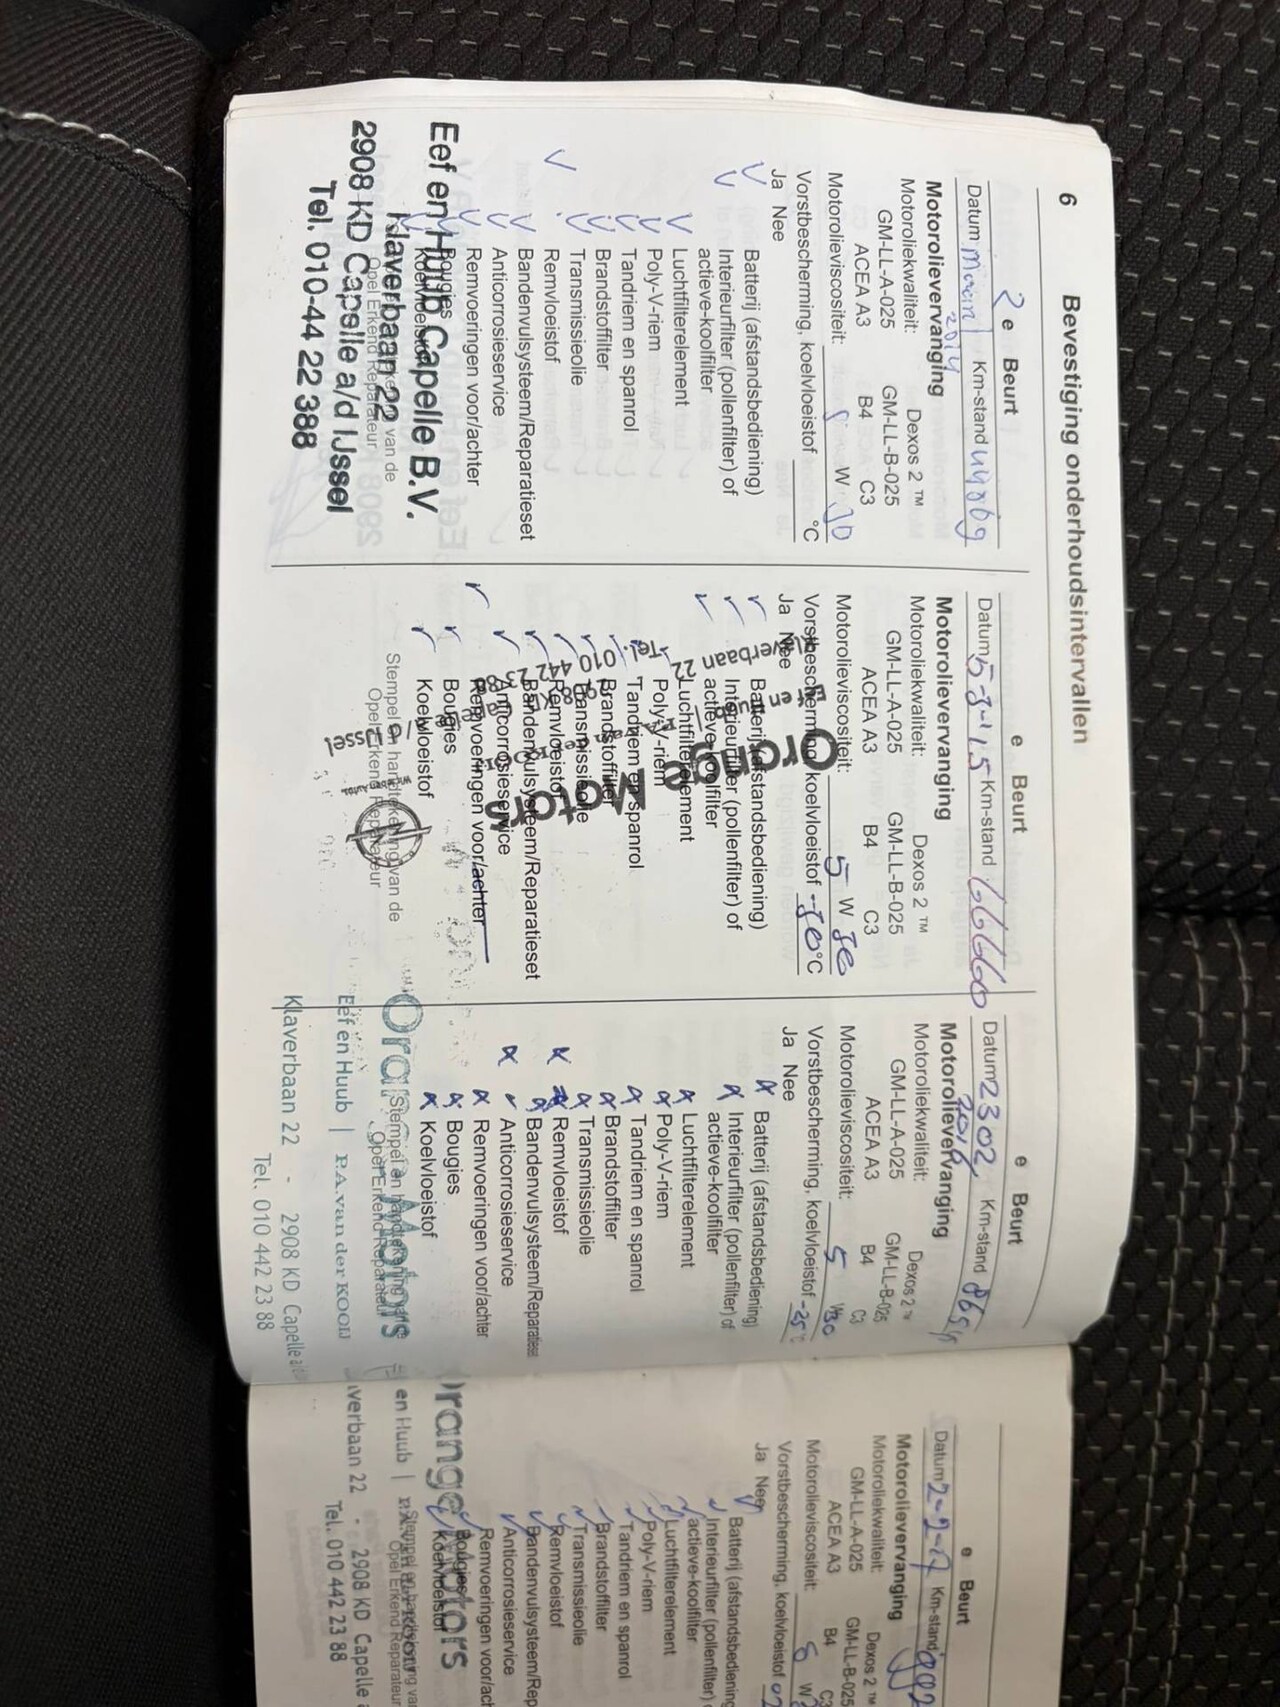 6 Bevestiging onderhoudsintervallen
2 e Beurt
Datum Km-stand
2014
Motorolievervanging
Motoroliekwaliteit: Dexos 2 ™
GM-LL-A-025 GM-LL-B-025
ACEA A3 B4 C3
Motorolieviscositeit: 5 W 30
Vorstbescherming, koelvloeistof °C
Ja Nee
Batterij (afstandsbediening)
Interieurfilter (pollenfilter) of
actieve-koolfilter
Luchtfilterelement
Poly-V-riem
Tandriem en spanrol
Brandstoffilter
Transmissieolie
Remvloeistof
Bandenvulsysteem/Reparatieset
Anticorrosieservice
Remvoeringen voor/achter
Bougies
Koelvloeistof
Opel Erkend Reparateur
Eef en Huub Capelle B.V.
Klaverbaan 22
2908 KD Capelle a/d IJssel
Tel. 010-44 22 388
e Beurt
Datum 5-3-'15 Km-stand 66660
Motorolievervanging
Motoroliekwaliteit: Dexos 2 ™
GM-LL-A-025 GM-LL-B-025
ACEA A3 B4 C3
Motorolieviscositeit: 5 W 30
Vorstbescherming, koelvloeistof -30 °C
Ja Nee
Batterij (afstandsbediening)
Interieurfilter (pollenfilter) of
actieve-koolfilter
Luchtfilterelement
Poly-V-riem
Tandriem en spanrol
Brandstoffilter
Transmissieolie
Remvloeistof
Bandenvulsysteem/Reparatieset
Anticorrosieservice
Remvoeringen voor/achter
Bougies
Koelvloeistof
Stempel en handtekening van de
Opel Erkend Reparateur
Orange Motors
Klaverbaan 22
Tel. 010 442 23 88
e Beurt
Datum 2302 Km-stand
2016
Motorolievervanging
Motoroliekwaliteit: Dexos 2 ™
GM-LL-A-025 GM-LL-B-025
ACEA A3 B4 C3
Motorolieviscositeit: 5 W 30
Vorstbescherming, koelvloeistof -25 °C
Ja Nee
Batterij (afstandsbediening)
Interieurfilter (pollenfilter) of
actieve-koolfilter
Luchtfilterelement
Poly-V-riem
Tandriem en spanrol
Brandstoffilter
Transmissieolie
Remvloeistof
Bandenvulsysteem/Reparatieset
Anticorrosieservice
Remvoeringen voor/achter
Bougies
Koelvloeistof
Stempel en handtekening van de
Opel Erkend Reparateur
Orange Motors
Eef en Huub | P.A. van der KOOIJ
Klaverbaan 22 - 2908 KD Capelle a/d
Tel. 010 442 23 88
e Beurt
Datum 2-2-17 Km-stand
Motorolievervanging
Motoroliekwaliteit: Dexos 2 ™
GM-LL-A-025 GM-LL-B-025
ACEA A3 B4 C3
Motorolieviscositeit: 5 W
Vorstbescherming, koelvloeistof
Ja Nee
Batterij (afstandsbediening
Interieurfilter (pollenfilter)
actieve-koolfilter
Luchtfilterelement
Poly-V-riem
Tandriem en spanrol
Brandstoffilter
Transmissieolie
Remvloeistof
Bandenvulsysteem/Rep
Anticorrosieservice
Remvoeringen voor/ach
Bougies
Koelvloeistof
Opel Erkend Reparateur
Orange Motors
en Huub |
laverbaan 22 - 2908 KD Capelle
Tel. 010 442 23 88